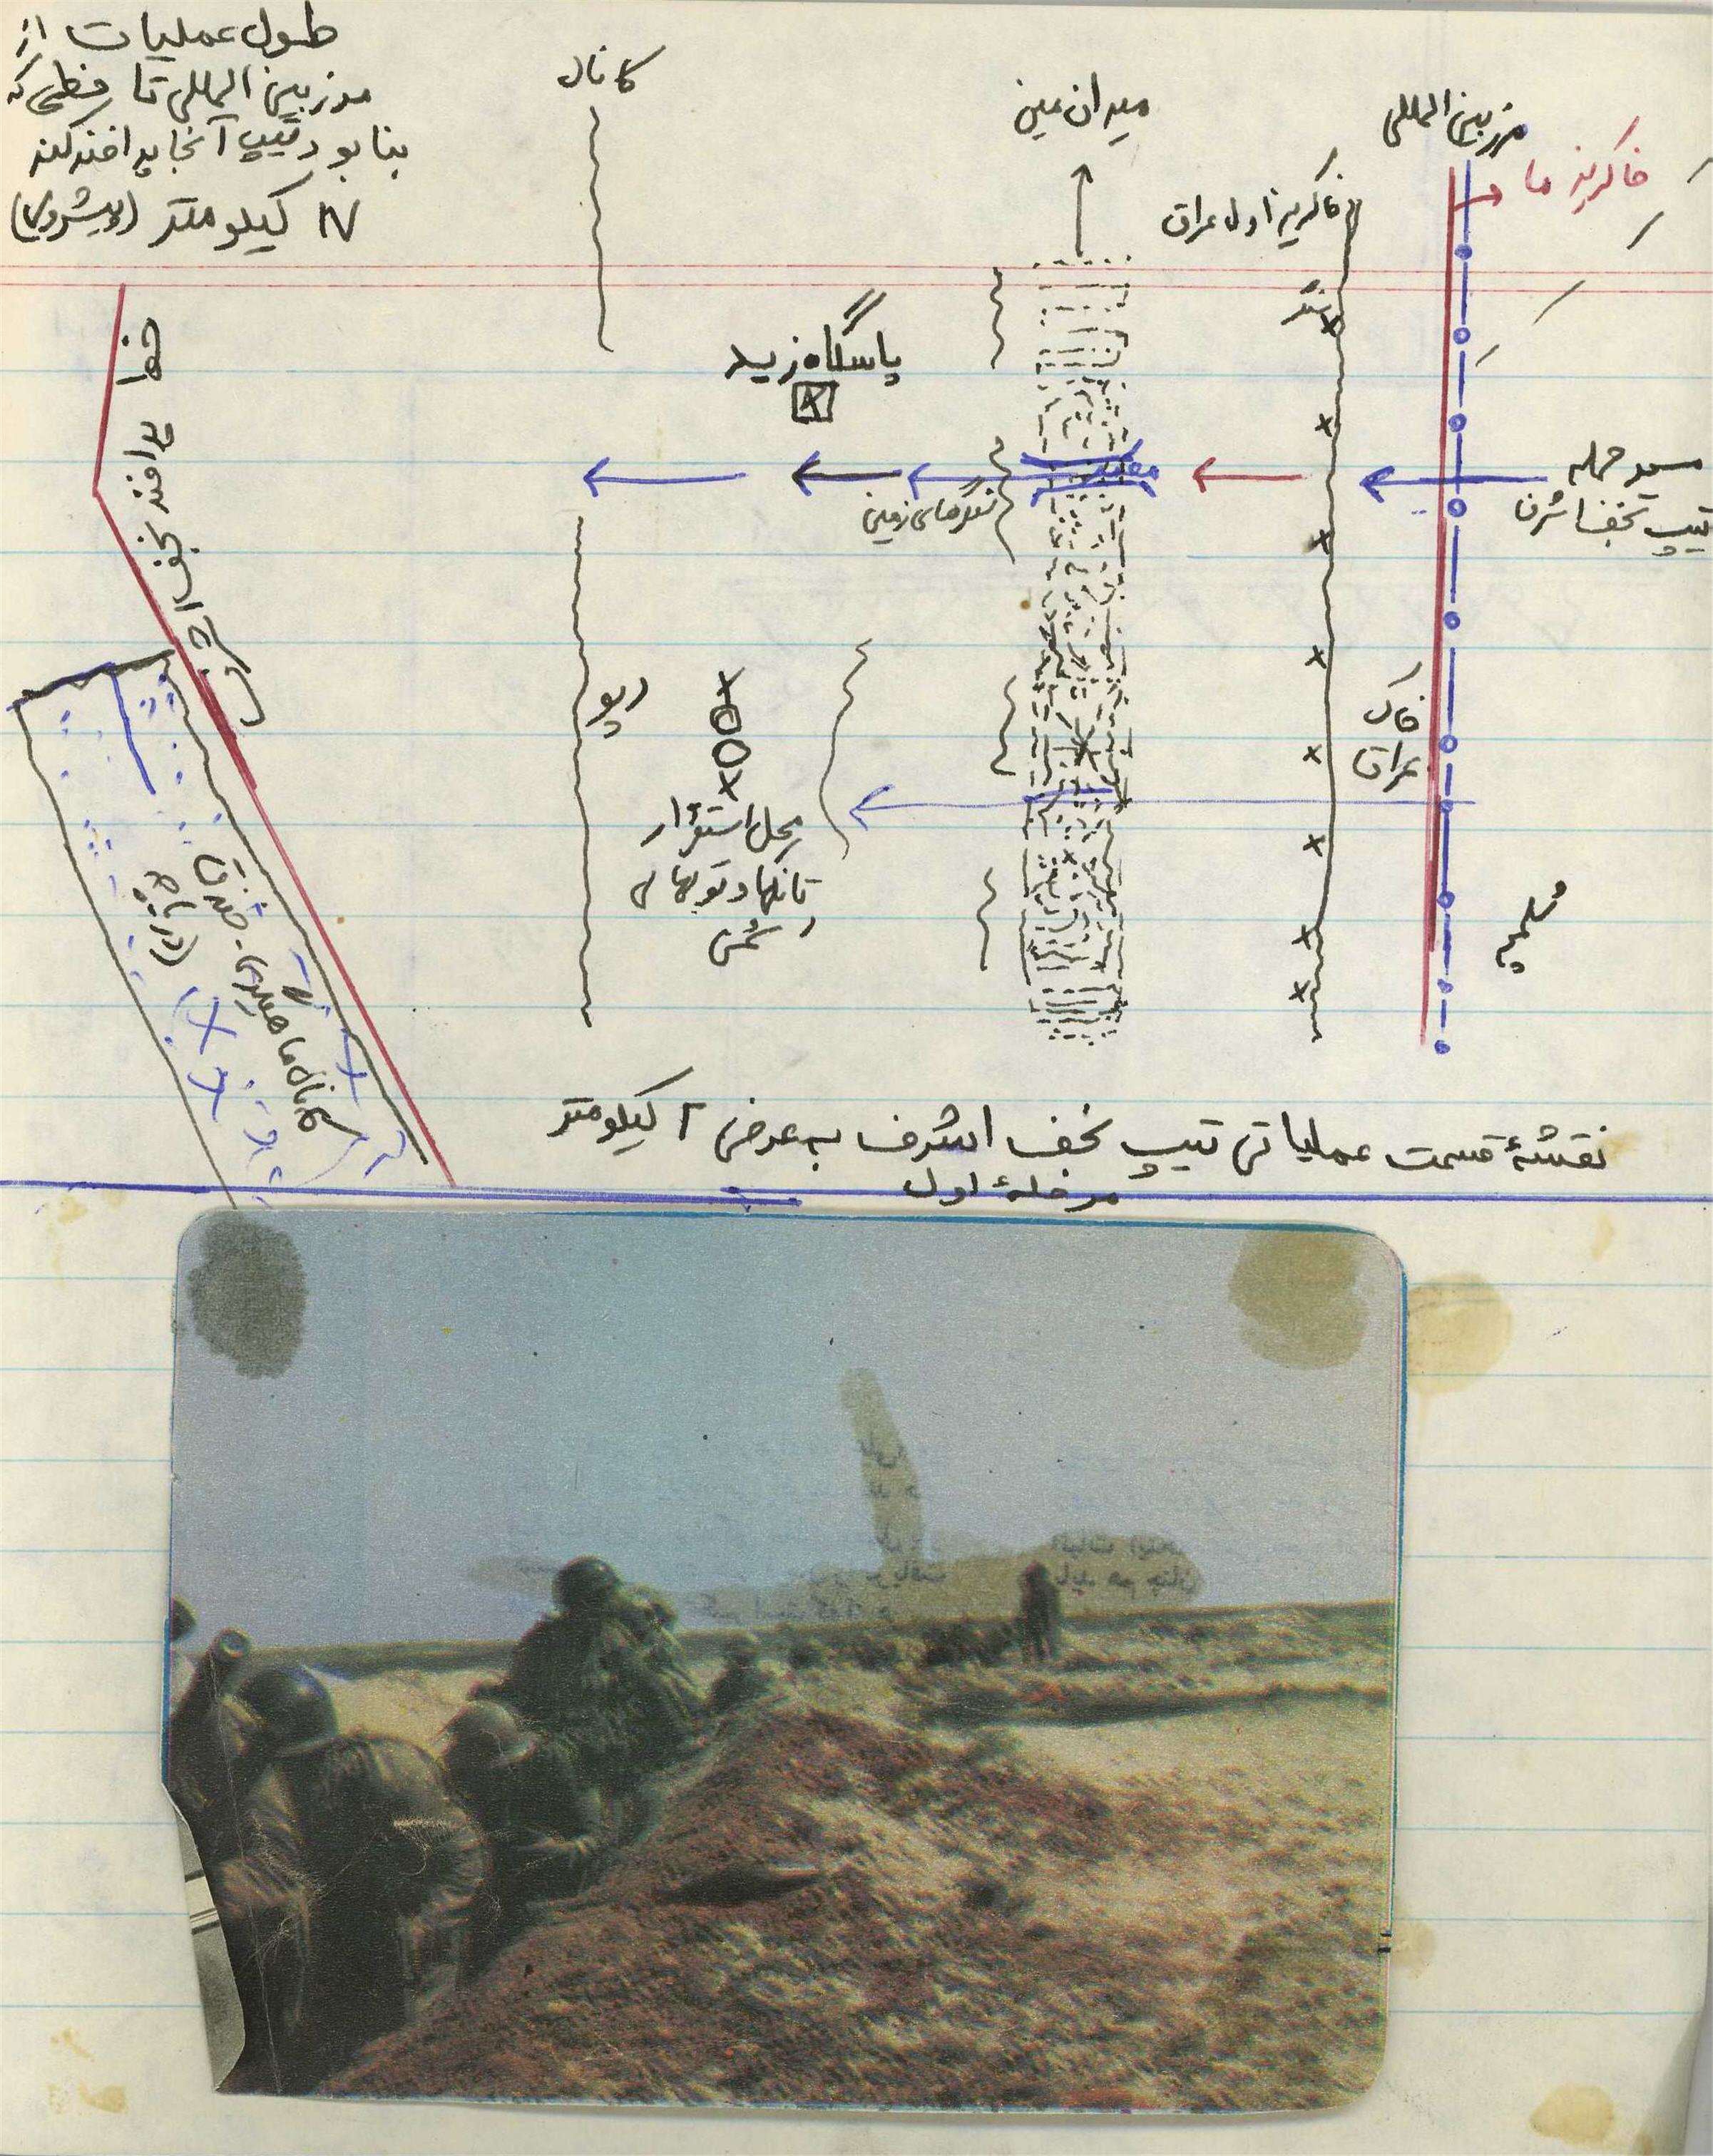 طول عملیات از
مرز بین المللی تا خطی که
بنا بود تیپ آنجا پدافند کند
۱۷ کیلومتر (پیشروی)
کانال
میدان مین
مرز بین المللی
خاکریز ما
خاکریز اول عراق
سنگر
پاسگاه زید
خط پدافند نجف اشرف
معبر
سنگرهای زمینی
مسیر حمله
تیپ نجف اشرف
خاک
عراق
دپو
محل استقرار
تانکها و توپهای
دشمن
شلمچه
کانال ماهیگیری - خندق
(دریاچه)
نقشهٔ قسمت عملیاتی تیپ نجف اشرف به عرض ۲ کیلومتر
مرحلهٔ اول